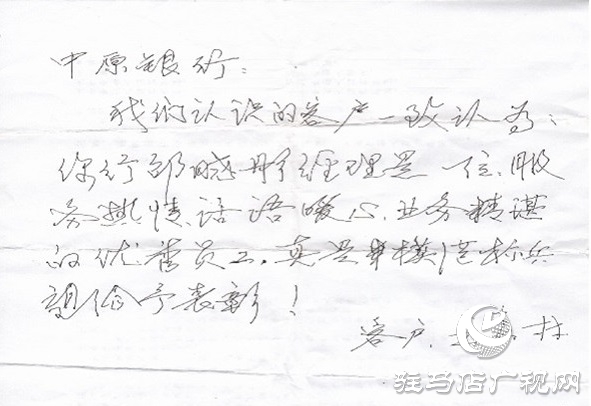 中原银行：
我们认识的客户一致认为：
你行邵晓彤经理是一位服
务热情、话语暖心、业务精湛
的优秀员工，真是模范标兵
望给予表彰！
客户
村
驻马店广视网